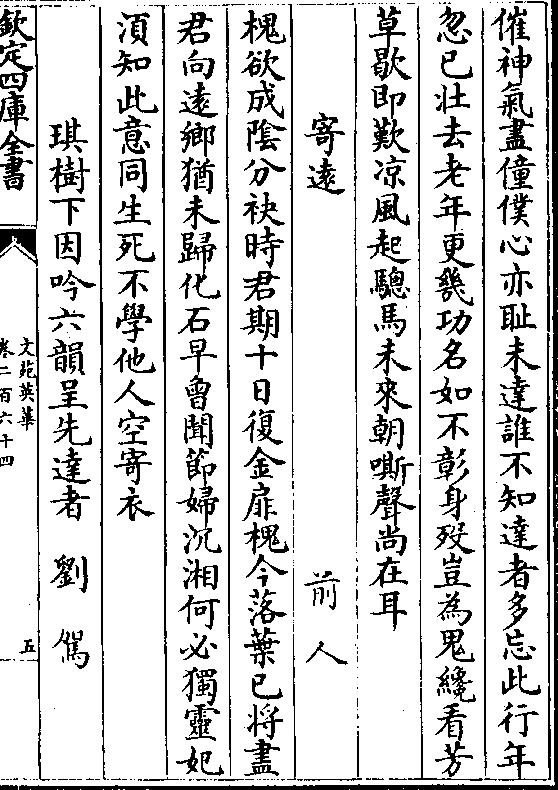 催神氣盡僮僕心亦耻未達誰不知達者多忘此行年
忽已壯去老年更㡬功名如不彰身殁豈為鬼纔看芳
草歇即歎凉風起驄馬未來朝嘶聲尚在耳
寄逺 前人
槐欲成隂分袂時君期十日復金扉槐今落葉已将盡
君向逺鄉猶未歸化石早曾聞節婦沉湘何必獨靈妃
湏知此意同生死不學他人空寄衣
琪樹下因吟六韻呈先達者 劉駕
欽定四庫全書
文苑英華
卷二百六十四
五